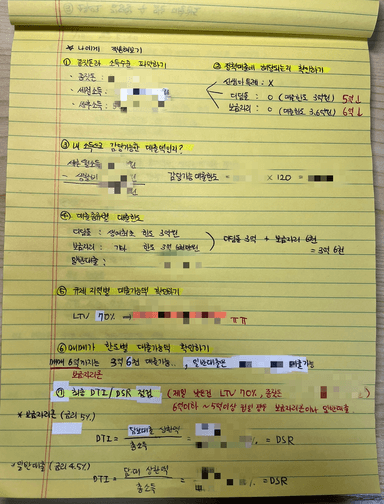 * 나에게 적용해보기
① 공짓돈과 소득수준 파악하기
② 정책대출에 해당되는지 확인하기
· 공짓돈 :
· 세전소득 :
· 세후소득 :
신생아특례 : X
디딤돌 : O (대출한도 3억원) 5억↓
보금자리 : O (대출한도 3.6억원) 6억↓
③ 내 소득으로 감당가능한 대출액인지?
세후월소득
- 생활비
감당가능대출한도 = X 120 =
④ 대출종류별 대출한도
디딤돌 : 생애최초 한도 3억원
보금자리 : 기타 한도 3억 6천만원
일반대출 :
디딤돌 3억 + 보금자리 6천
= 3억 6천
⑤ 규제지역별 대출가능액 확인하기
LTV 70% → ㅠㅠ
⑥ 매매가 한도별 대출가능액 확인하기
매매 6억까지는 3억 6천 대출가능.. 일반대출은 대출가능
보금자리론
⑦ 최종 DTI/DSR 점검
LTV 70%,
6억이하 ~ 5억이상 보금자리론이나 일반대출
* 보금자리론 (금리 5%)
DTI = 담보대출 상환액 / 총소득 = % = DSR
* 일반대출 (금리 4.5%)
DTI = 상환액 / 총소득 = % = DSR